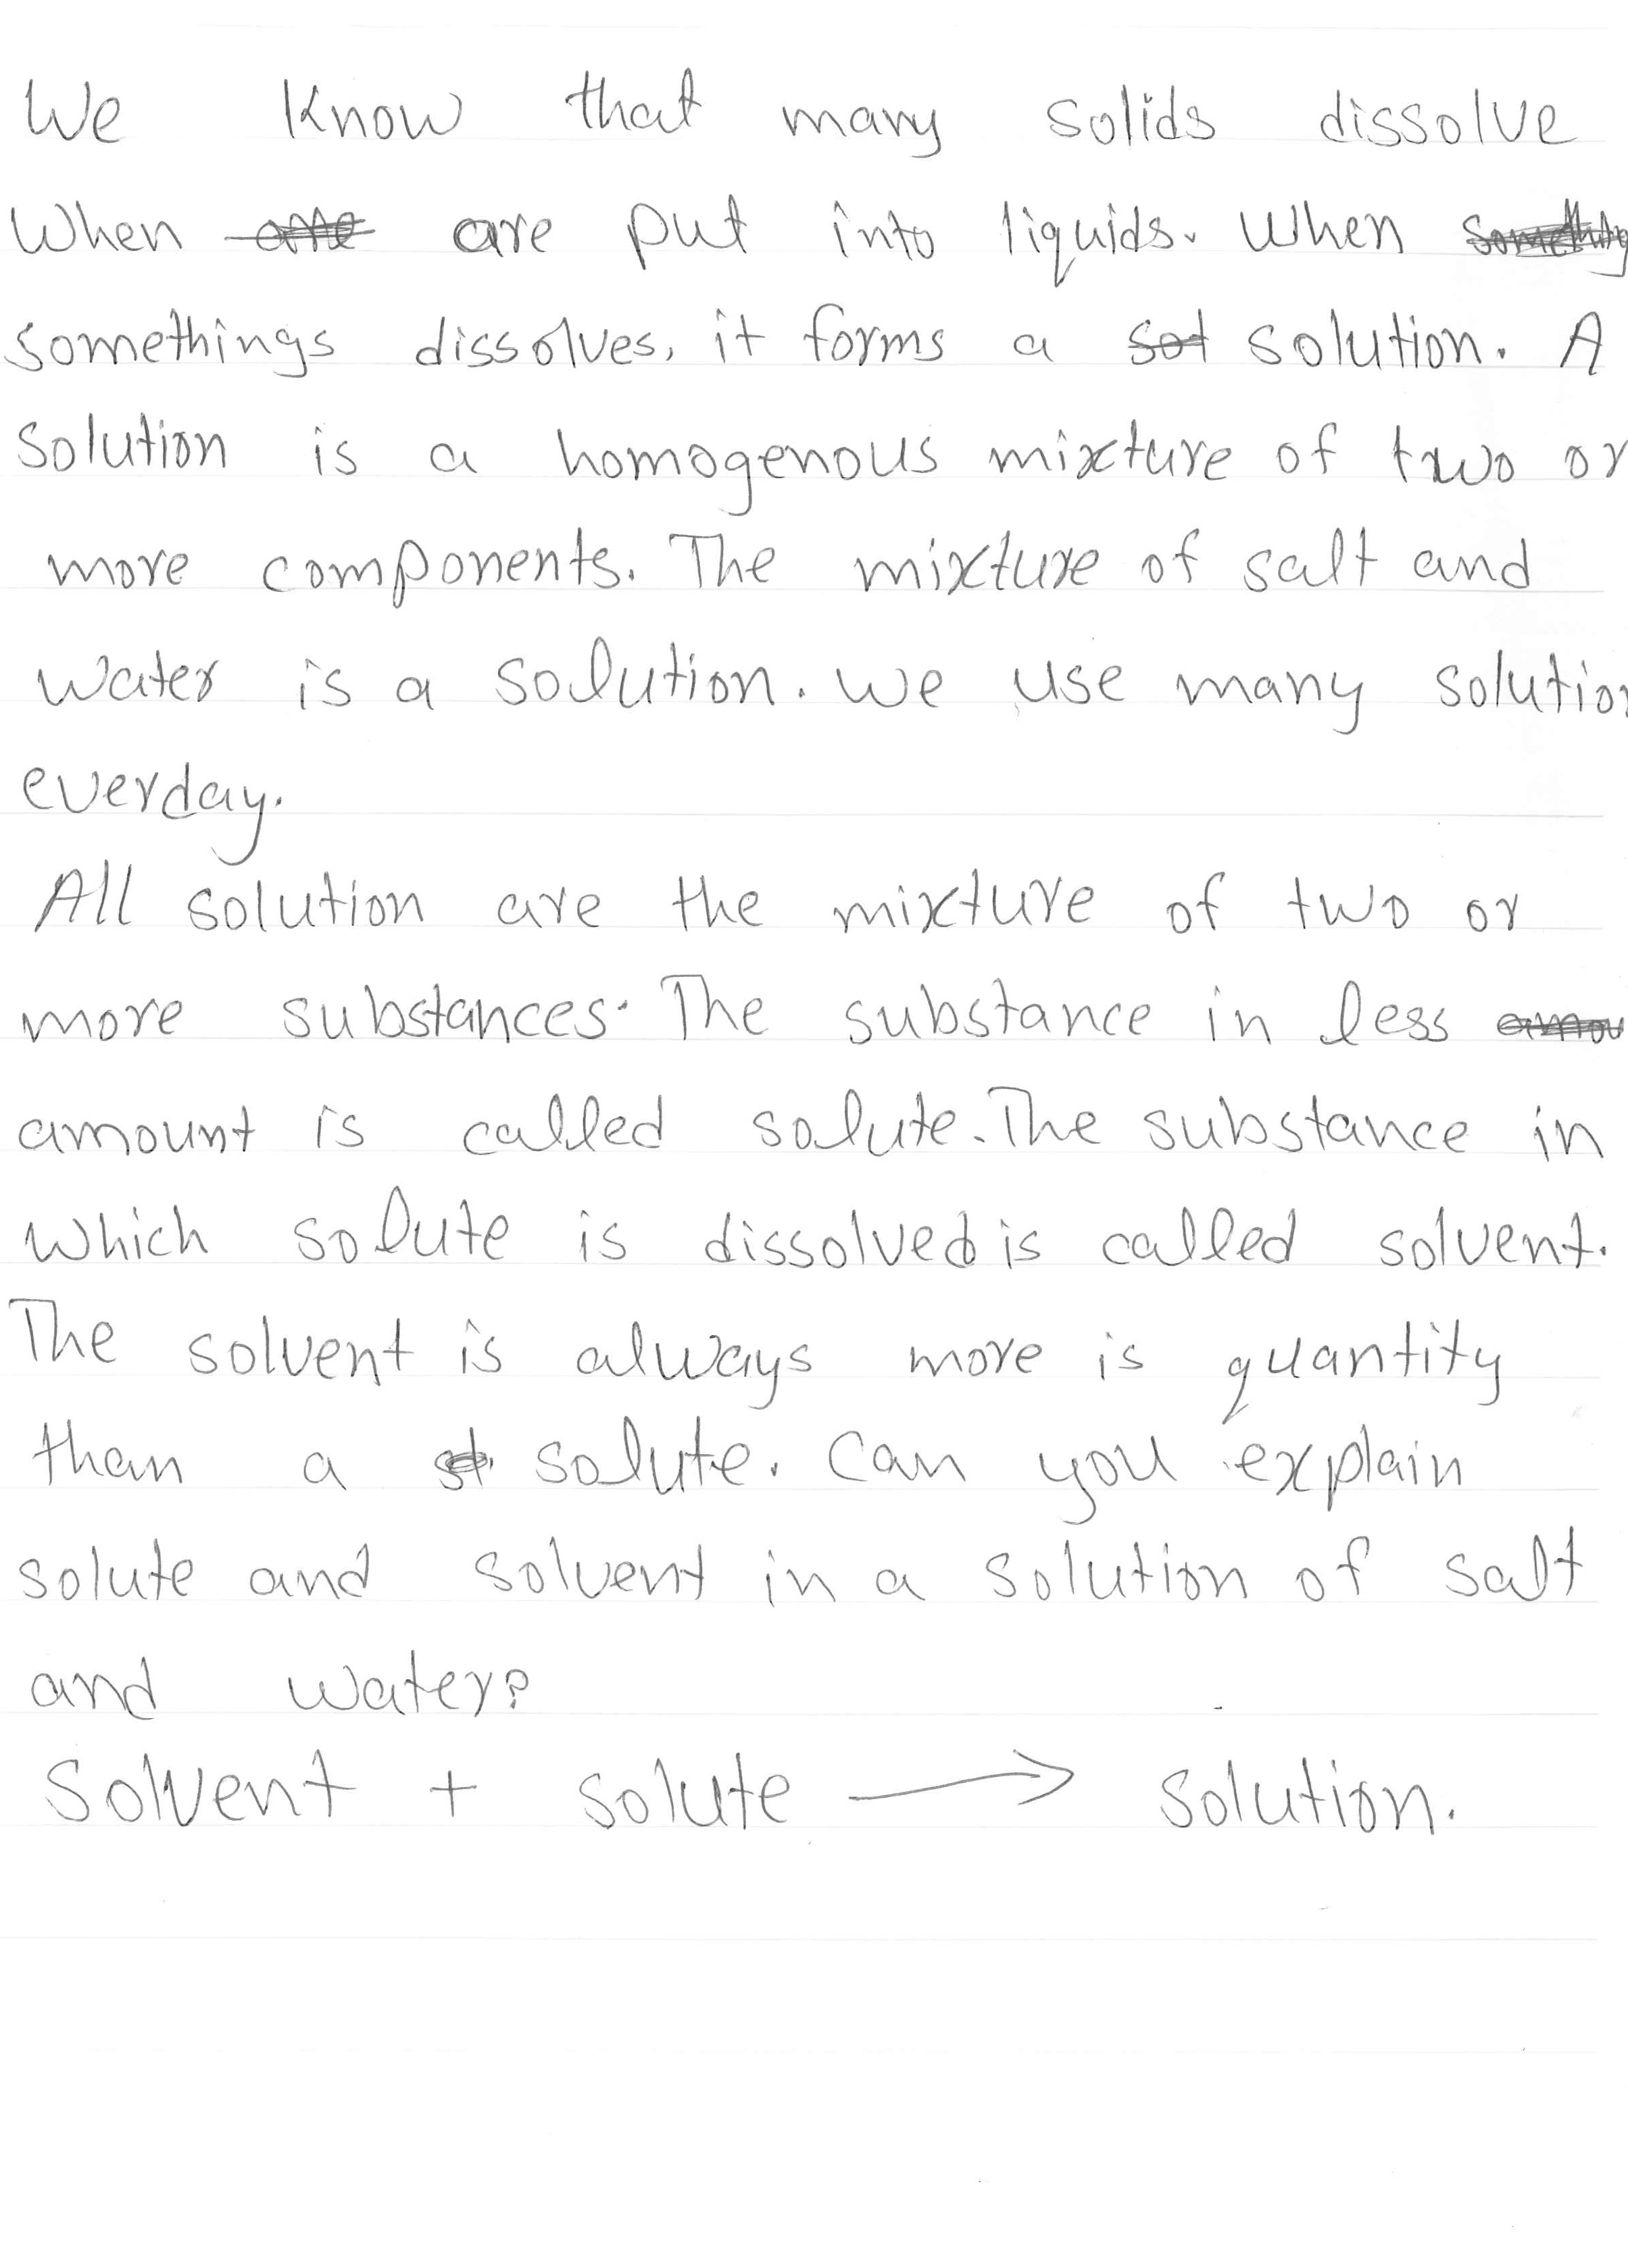 We know that many solids dissolve
When are put into liquids. When
somethings dissolves, it forms a solution. A
Solution is a homogenous mixture of two or
more components. The mixture of salt and
water is a solution. We use many solution
everday.
All solution are the mixture of two or
more substances. The substance in less
amount is called solute. The substance in
which solute is dissolved is called solvent.
The solvent is always more is quantity
than a solute. Can you explain
solute and solvent in a solution of salt
and water?
Solvent + solute → solution.